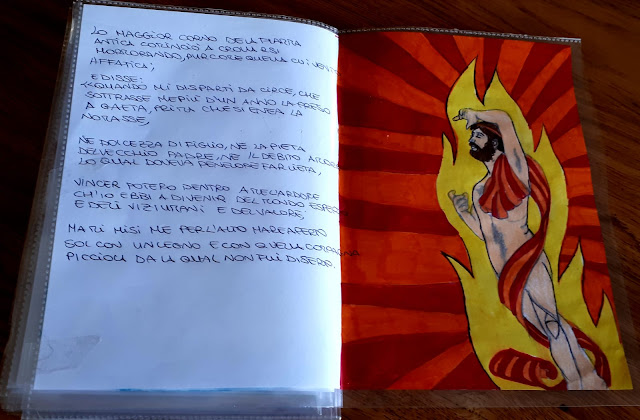 LO MAGGIOR CORNO DELLA FIAMMA
ANTICA COMINCIÒ A CROLLARSI
MORMORANDO, PUR COME QUELLA CUI VENTO
AFFATICA;
E DISSE:
"QUANDO MI DISPARTI DA CIRCE, CHE
SOTTRASSE ME PIÙ D'UN ANNO LÀ PRESSO
A GAETA, PRIMA CHE SI ENEA LA
NOMASSE,
NÉ DOLCEZZA DI FIGLIO, NÉ LA PIETA
DEL VECCHIO PADRE, NÉ IL DEBITO
LO QUAL DOVEVA PENELOPE FAR LIETA,
VINCER POTERO DENTRO A ME L'ARDORE
CH'IO EBBI A DIVENIR DEL MONDO ESPERTO
E DELI VIZI UMANI E DEL VALORE;
MA MI MISI ME PER L'ALTO MARE APERTO
SOL CON UN LEGNO E CON QUELLA COMPAGNA
PICCIOLA DA LA QUAL NON FUI DISERTO.